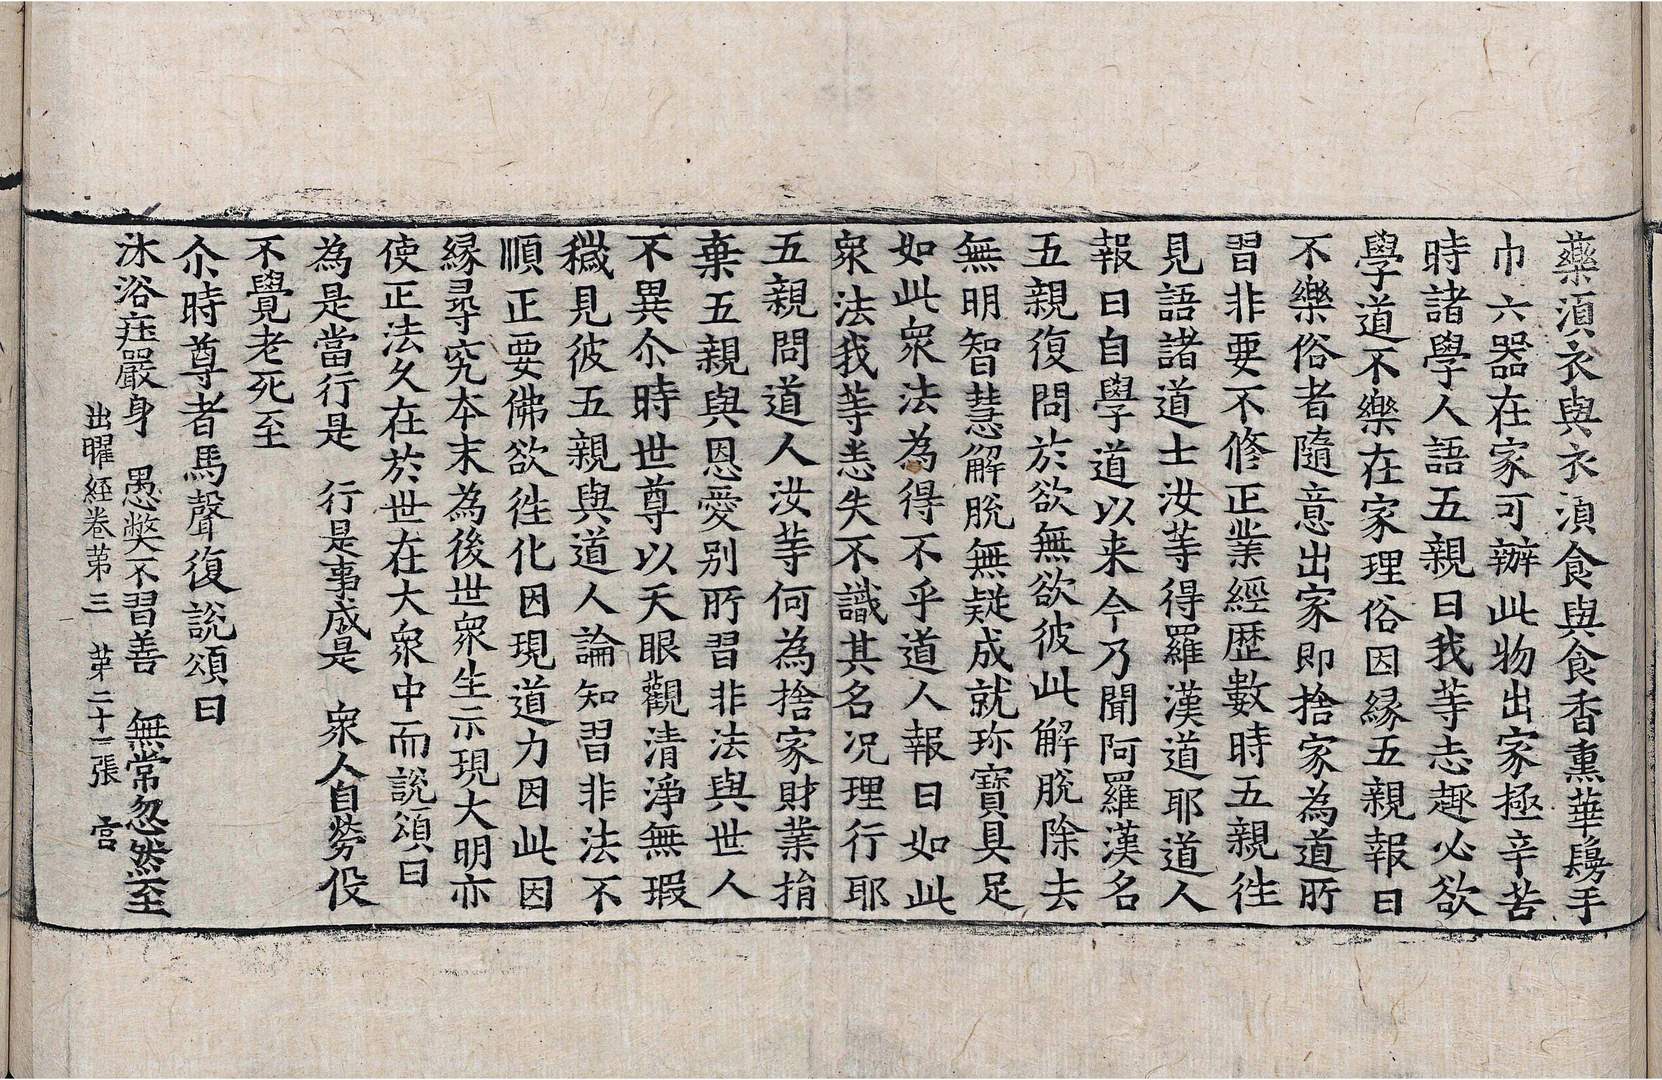 藥湏衣與衣湏食與食香熏華鬘手
巾六器在家可辦此物出家極辛苦
時諸學人語五親曰我等志趣必欲
學道不樂在家理俗因縁五親報曰
不樂俗者隨意出家即捨家為道所
習非要不修正業經歷數時五親徃
見語諸道士汝等得羅漢道耶道人
報曰自學道以来今乃聞阿羅漢名
五親復問於欲無欲彼此解脫除去
無明智慧解脫無疑成就珎寶具足
如此衆法為得不乎道人報曰如此
衆法我等恚失不識其名况理行耶
五親問道人汝等何為捨家財業捐
棄五親與恩愛別所習非法與世人
不異尒時世尊以天眼觀清淨無瑕
穢見彼五親與道人論知習非法不
順正要佛欲徃化因現道力因此因
縁尋究本末為後世衆生示現大明亦
使正法久在於世在大衆中而說頌曰
為是當行是　行是事成是　衆人自勞伇
不覺老死至
尒時尊者馬聲復說頌曰
沐浴疰嚴身　愚獘不習善　無常忽然至
出曜經卷苐三　苐二十一張　宫